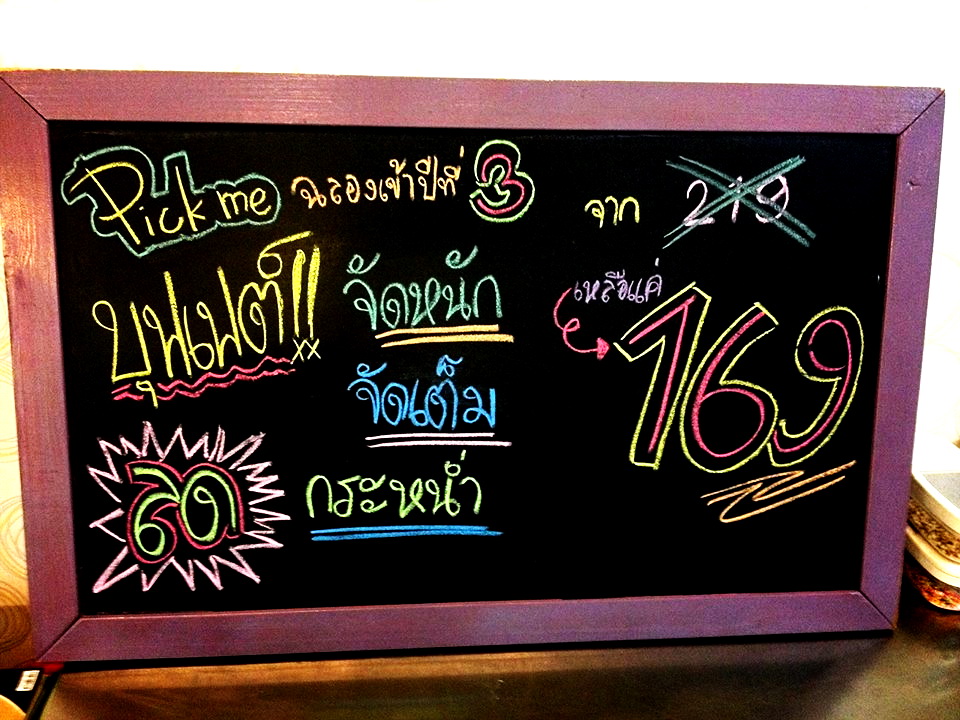 Pick me ฉลองเข้าปีที่ 3
บุฟเฟต์!!
จัดหนัก
จัดเต็ม
ลด กระหน่ำ
จาก 219
เหลือแค่
169